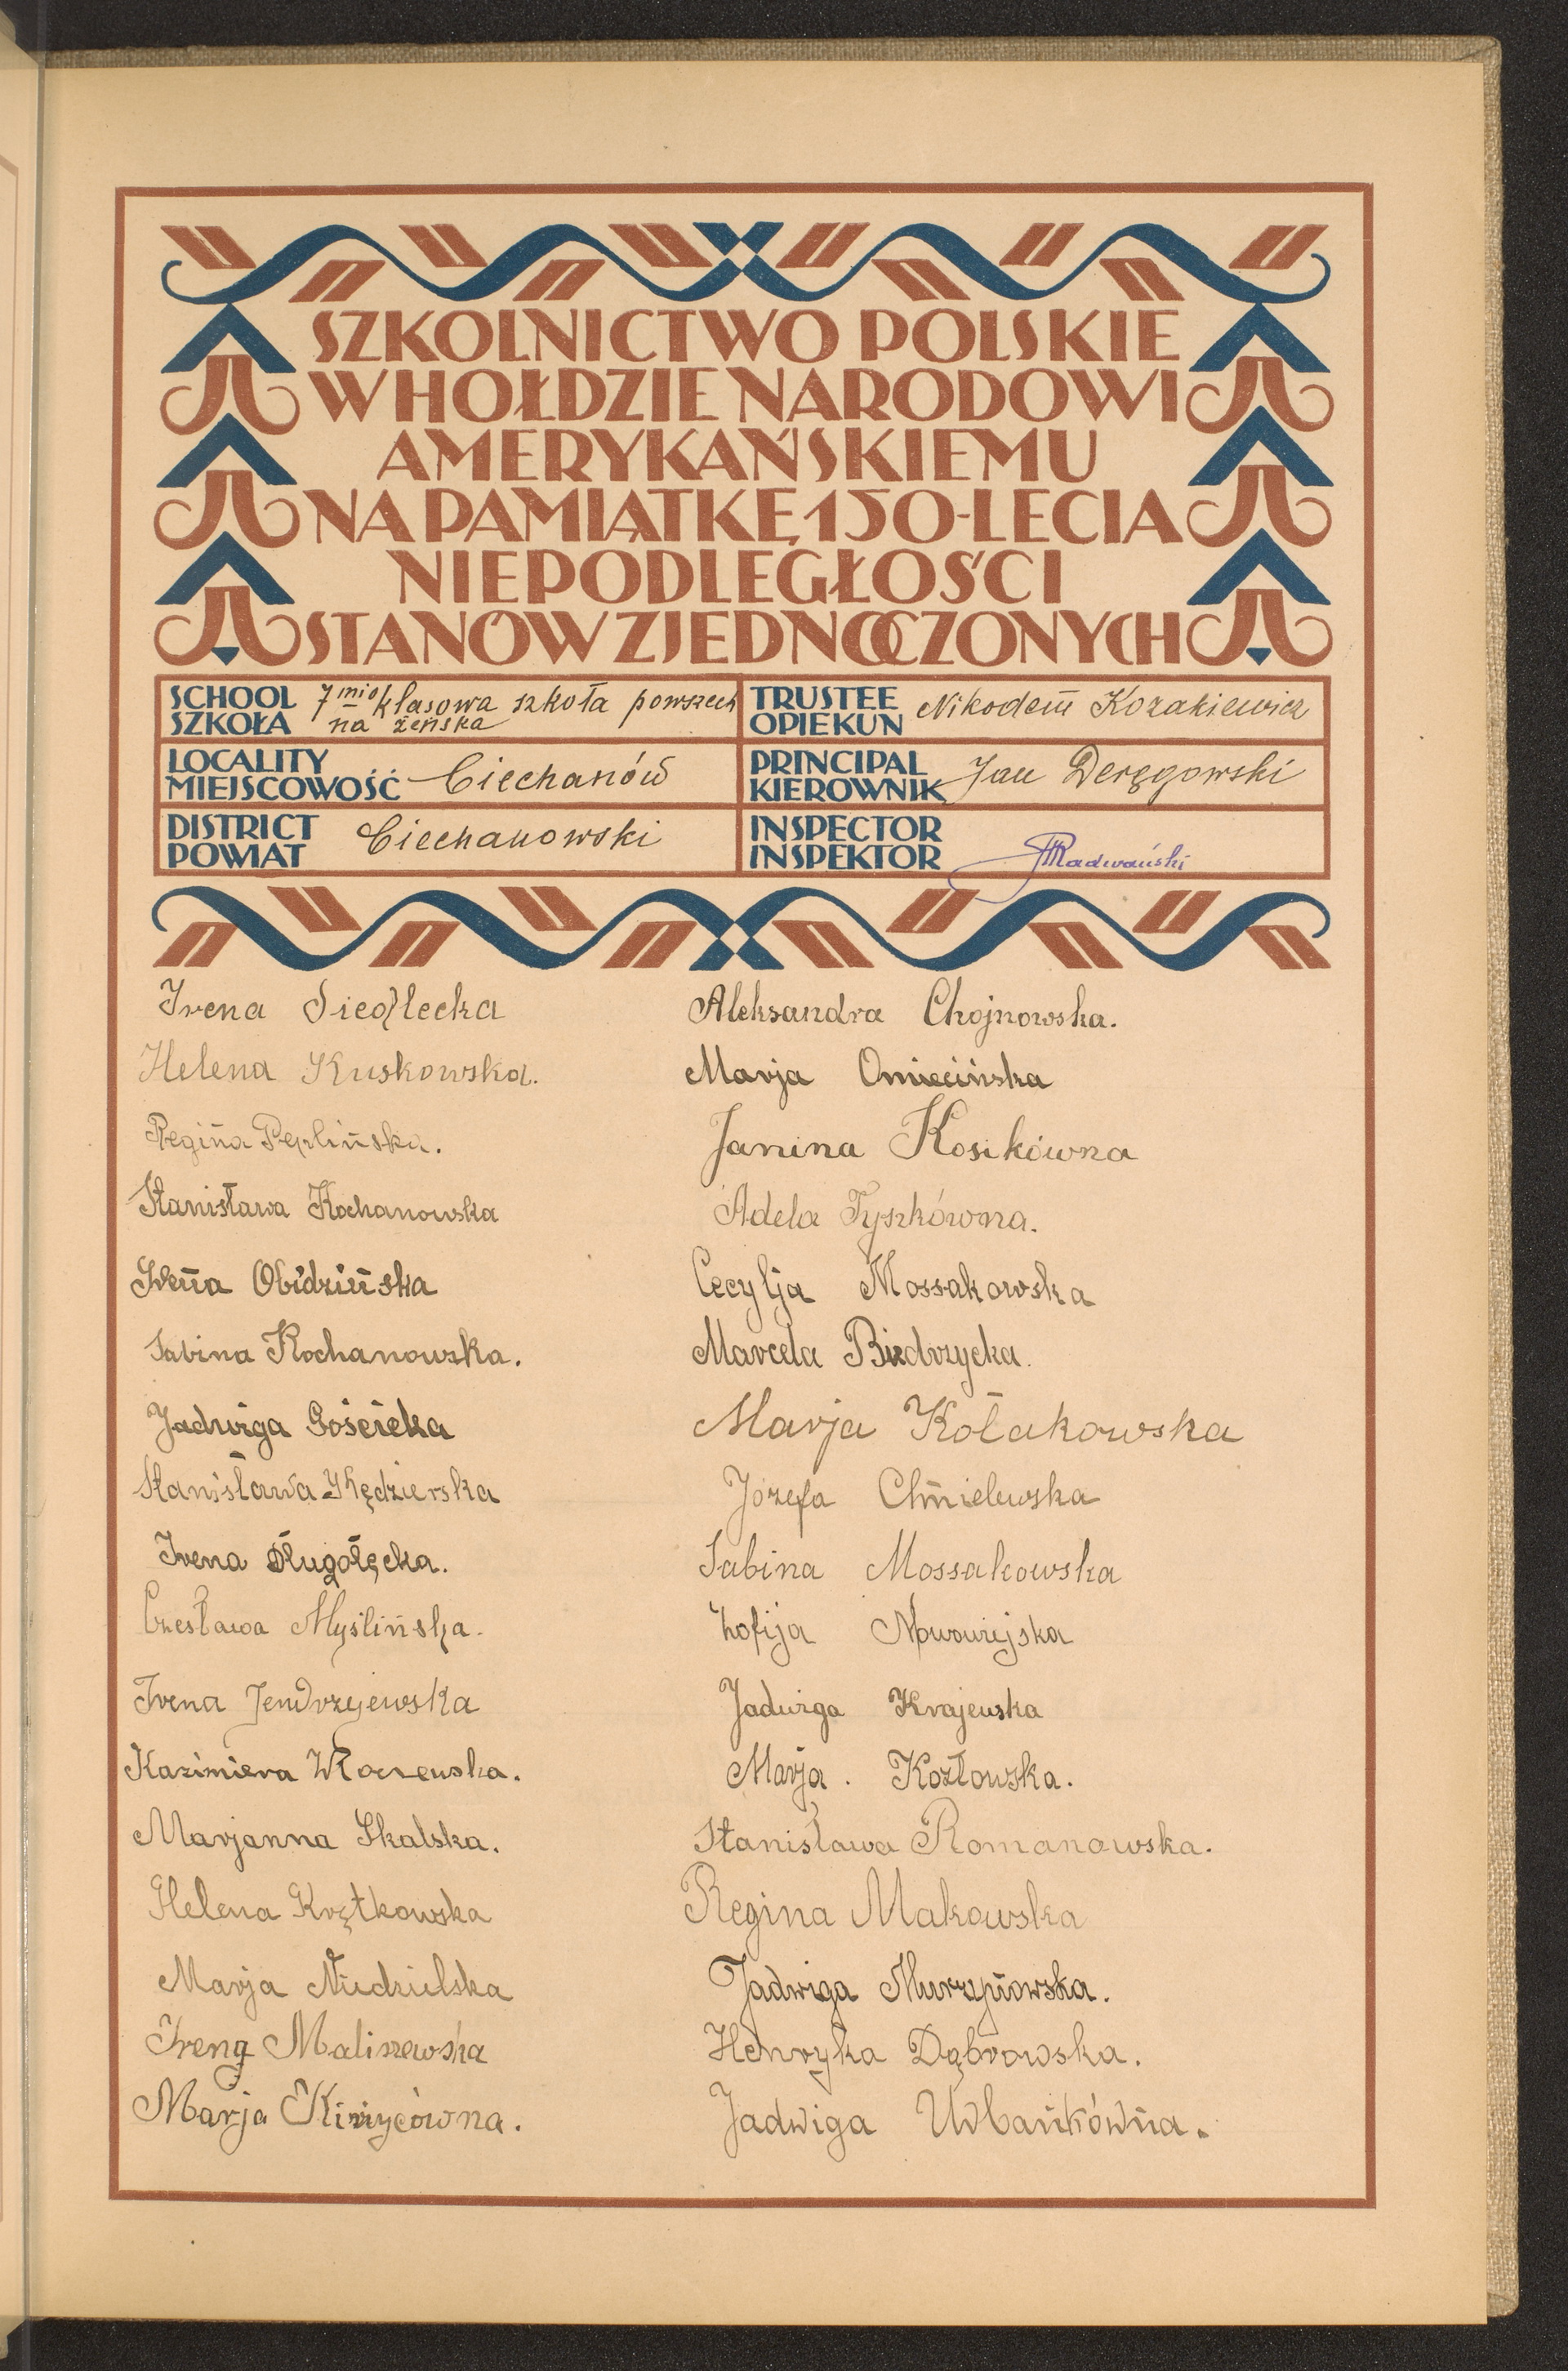 SZKOLNICTWO POLSKIE
W HOŁDZIE NARODOWI
AMERYKAŃSKIEMU
NA PAMIĄTKĘ 150-LECIA
NIEPODLEGŁOŚCI
STANÓW ZJEDNOCZONYCH
SCHOOL
SZKOŁA
7 mio klasowa szkoła powszech
na żeńska
TRUSTEE
OPIEKUN
Nikodem Kozakiewicz
LOCALITY
MIEJSCOWOŚĆ
Ciechanów
PRINCIPAL
KIEROWNIK
Jan Deręgowski
DISTRICT
POWIAT
Ciechanowski
INSPECTOR
INSPEKTOR
Radwański
Irena Siedlecka
Helena Kuskowska.
Regina
Stanisława Kochanowska
Irena Obidzińska
Sabina Kochanowska.
Jadwiga Gościcka
Stanisława Kędzierska
Irena Długołęcka.
Czesława Myślińska.
Irena Jendrzejewska
Kazimiera
Marjanna Skalska.
Helena Krętkowska
Marja Niedzielska
Irena Maliszewska
Marja
Aleksandra Chojnowska.
Marja Omiecińska
Janina Kosikówna
Adela Tyszkówna.
Cecylja Mossakowska
Marcela Biedrzycka.
Marja Kołakowska
Józefa Chmielewska
Sabina Mossakowska
Zofija Nowowiejska
Jadwiga Krajewska
Marja. Kozłowska.
Stanisława Romanowska.
Regina Makowska
Jadwiga Murzynowska.
Henryka Dąbrowska.
Jadwiga Urbankówna.